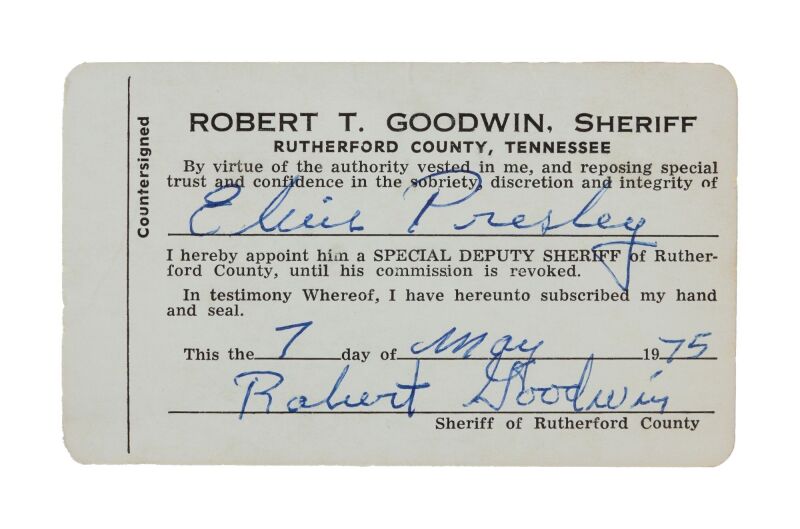 ROBERT T. GOODWIN, SHERIFF
RUTHERFORD COUNTY, TENNESSEE
By virtue of the authority vested in me, and reposing special
trust and confidence in the sobriety, discretion and integrity of
Elvis Presley
I hereby appoint him a SPECIAL DEPUTY SHERIFF of Ruther-
ford County, until his commission is revoked.
In testimony Whereof, I have hereunto subscribed my hand
and seal.
This the 7 day of May 1975
Robert Goodwin
Sheriff of Rutherford County
Countersigned